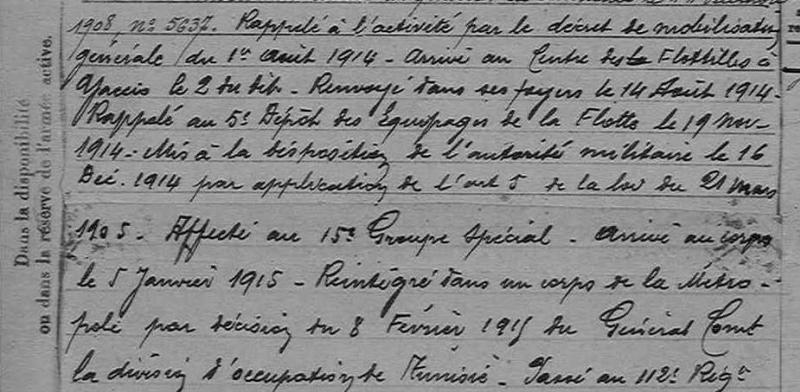 Dans la disponibilité
ou dans la réserve de l'armée active.
1908 no 5637. Rappelé à l'activité par le décret de mobilisation
générale du 1er août 1914 - Arrivé au Centre des Flottilles à
Ajaccio le 2 du dit - Renvoyé dans ses foyers le 14 Août 1914 -
Rappelé au 5e Dépôt des Equipages de la Flotte le 19 Nov-
1914 - Mis à la disposition de l'autorité militaire le 16
Déc. 1914 par application de l'art 5 de la loi du 21 mars
1905 - Affecté au 15e Groupe Spécial - Arrivé au corps
le 5 Janvier 1915 - Réintégré dans un corps de la Métro-
pole par décision du 8 Février 1915 du Général Comt
la division d'occupation de Tunisie - Passé au 112e Régt